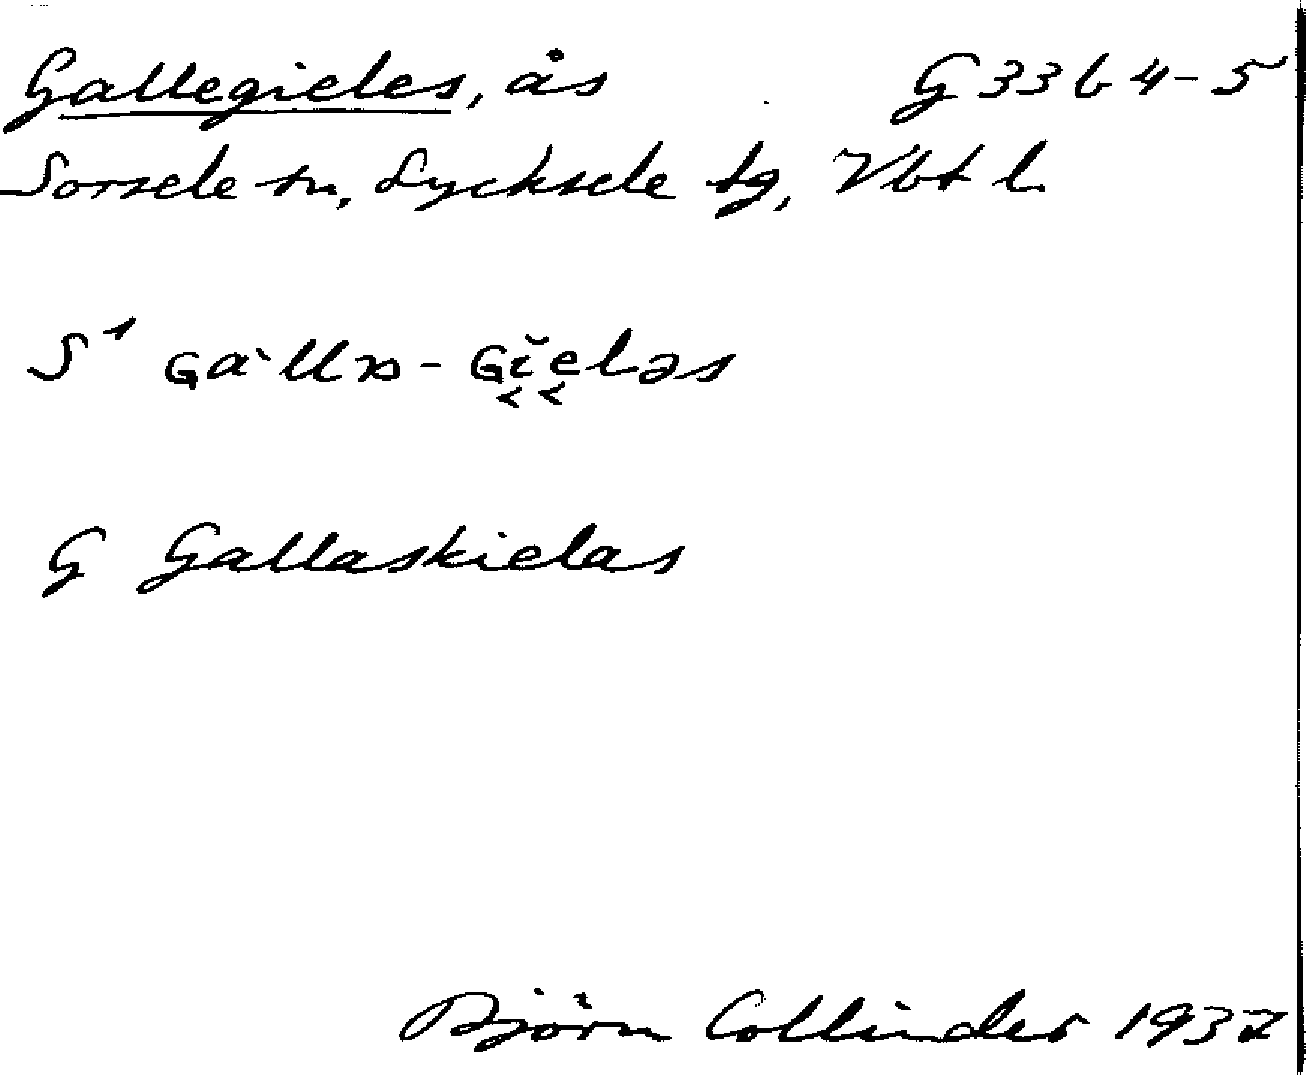 Gallegieles, ås G 33 b 4-5
Sorsele sn, Lycksele tg, Vbt l.
S¹ ɢa`llɒ-ɢĭe̮ləs
G Gallaskielas
Björn Collinder 1937